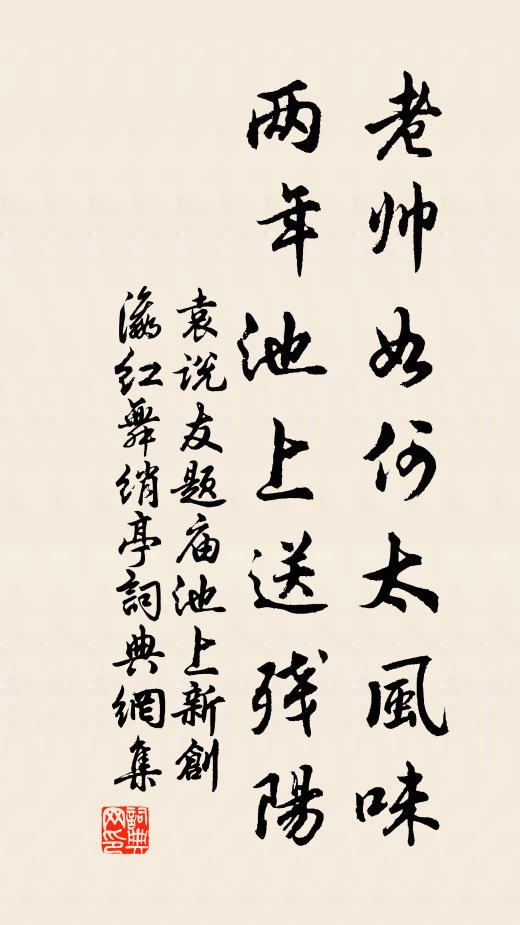 老帅如何太風味
两年池上送残陽
袁说友题庙池上新創
瀛红舞绡亭詞典網集
詞典网印